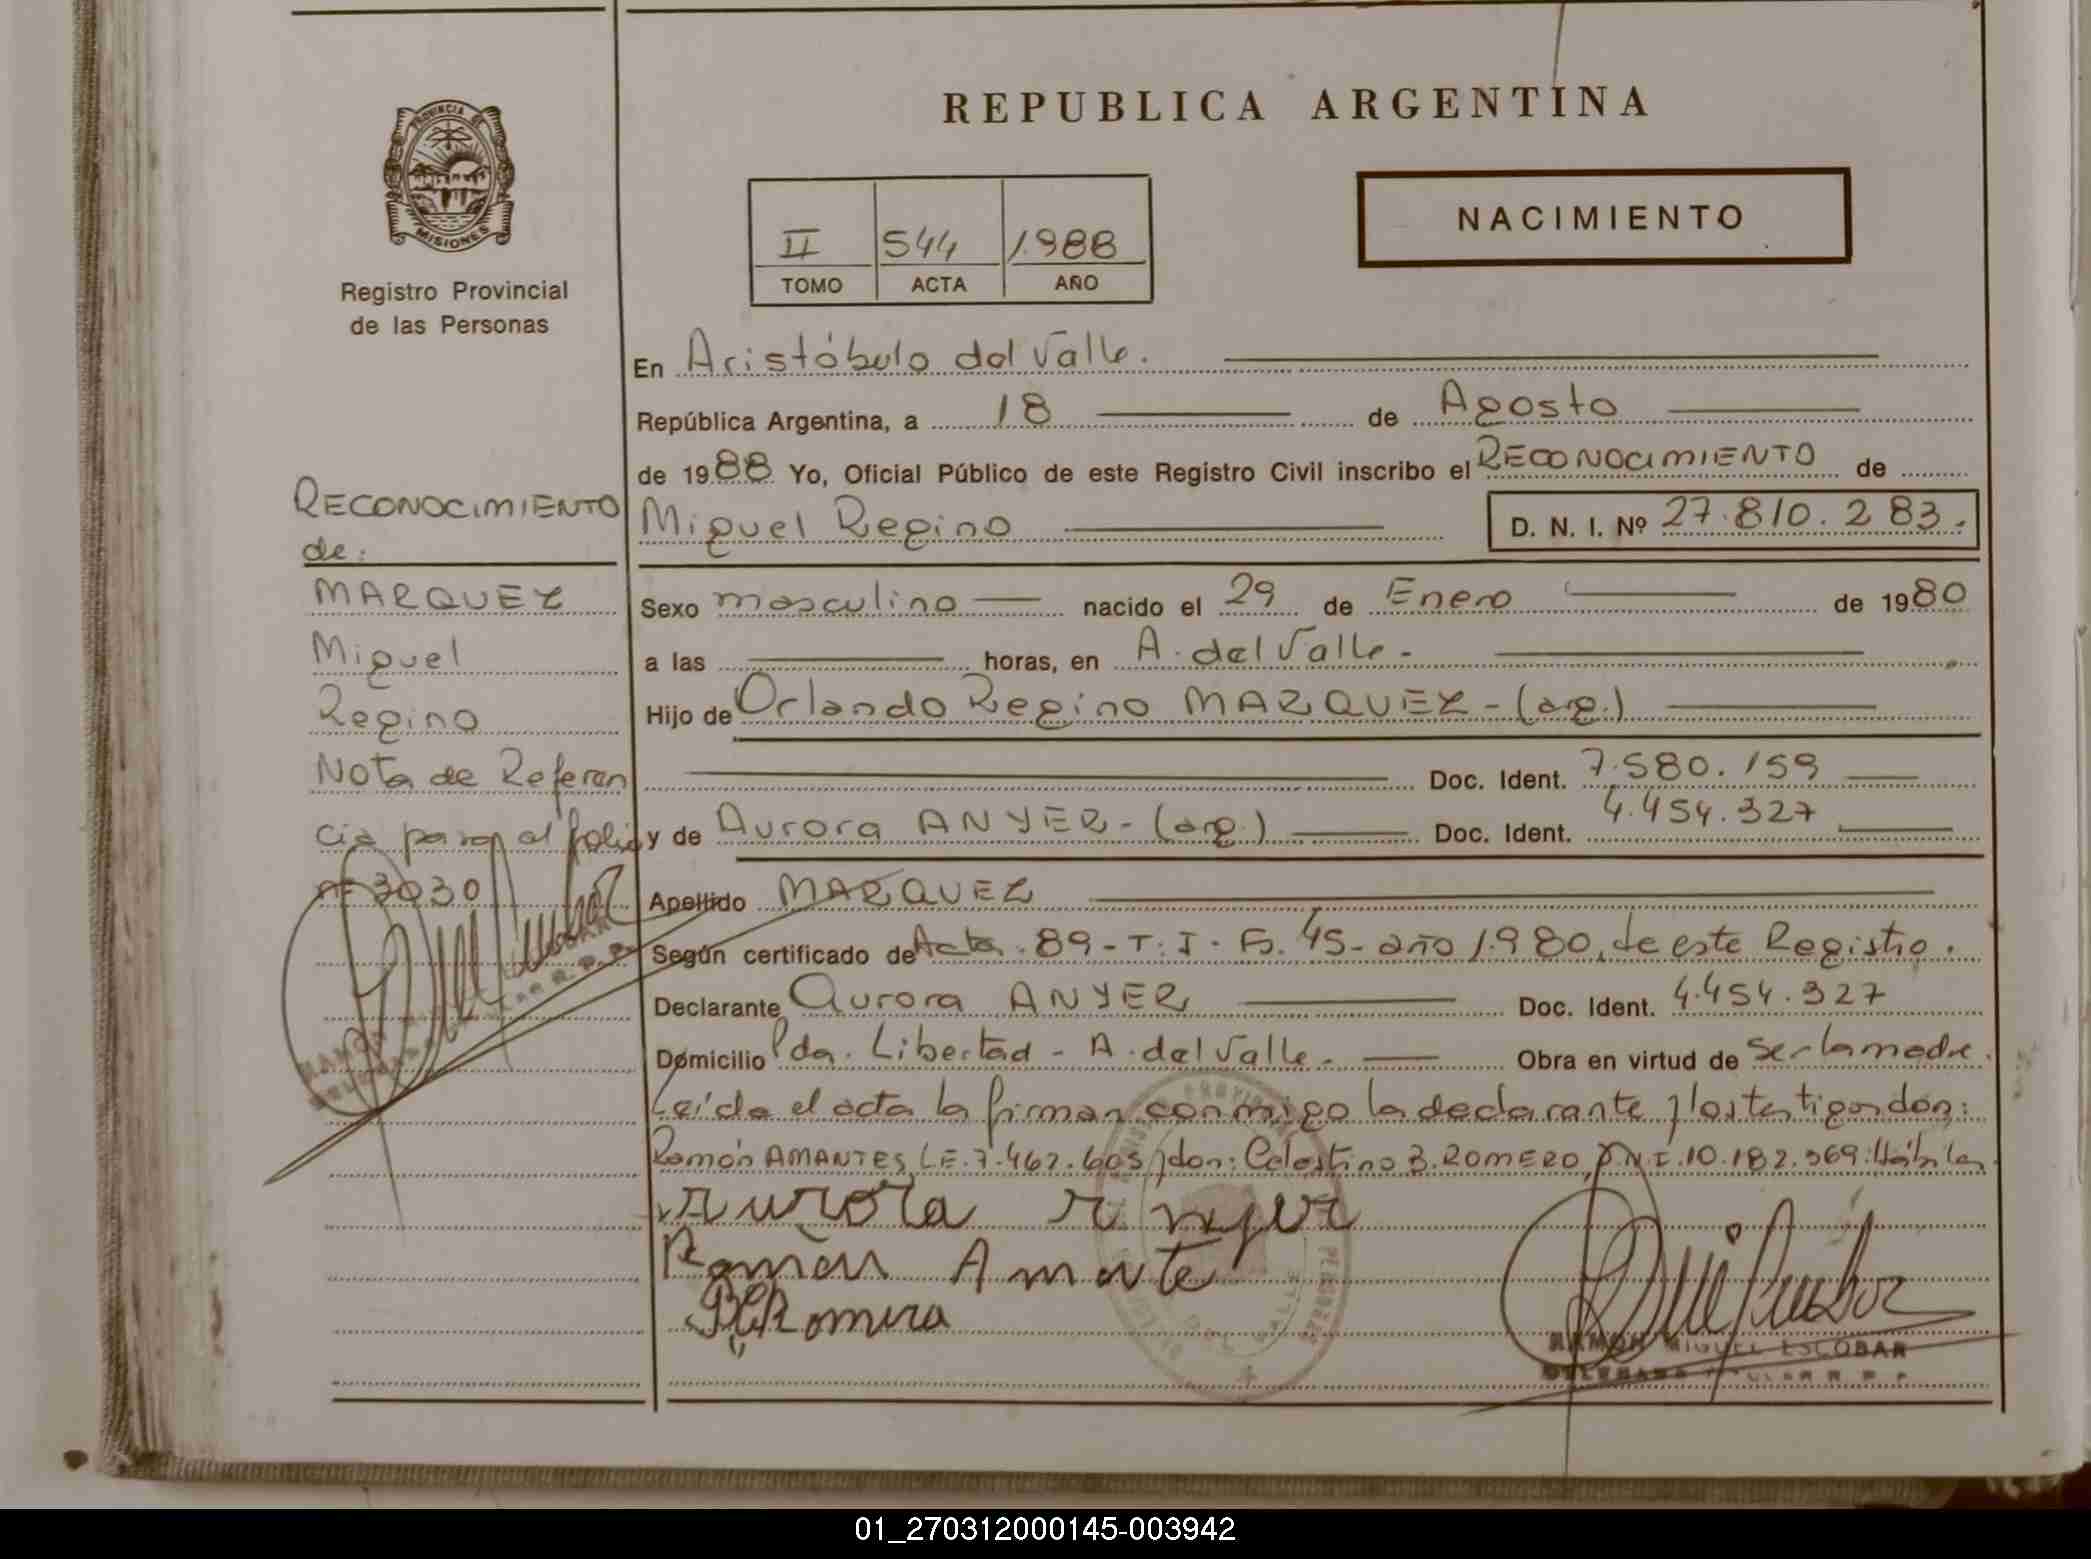 REPUBLICA ARGENTINA
PROVINCIA DE
MISIONES
Registro Provincial
de las Personas
NACIMIENTO
II 544 1.988
TOMO ACTA AÑO
En Aristóbulo del Valle.
República Argentina, a 18 de Agosto
de 1988 Yo, Oficial Público de este Registro Civil inscribo el RECONOCIMIENTO de
Miguel Regino D. N. I. Nº 27.810.283.
Sexo masculino nacido el 29 de Enero de 1980
a las horas, en A. del Valle.
Hijo de Orlando Regino MARQUEZ - (arg.)
Doc. Ident. 7.580.159
y de Aurora ANYER - (arg.) Doc. Ident. 4.454.327
Apellido MARQUEZ
Según certificado de Acta. 89 - T. I - Fo. 45 - año 1.980, de este Registro.
Declarante Aurora ANYER Doc. Ident. 4.454.327
Domicilio Pda. Libertad - A. del Valle. Obra en virtud de ser la madre.
Leída el acta la firman conmigo la declarante y los testigos don:
Ramón AMANTES, L.E. 7.467.605 y don: Celestino B. ROMERO, D.N.I. 10.182.369. Hábiles
Aurora Anyer
Ramon Amante
Romero
RAMON MIGUEL ESCOBAR
DELEGADO TITULAR R. P. P.
RECONOCIMIENTO
de:
MARQUEZ
Miguel
Regino
Nota de Referen
cia pasa al folio
nº 3030
01_270312000145-003942